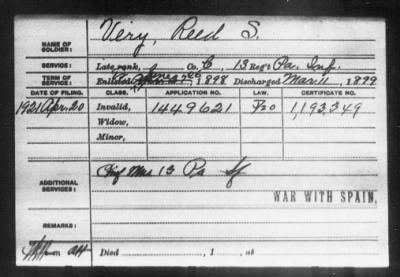 Very, Reed S.
NAME OF SOLDIER:
SERVICE: Late rank, Co. C, 13 Reg't Pa. Inf.
TERM OF SERVICE: Enlisted 1898 Discharged Mar 11, 1899
DATE OF FILING. CLASS. APPLICATION NO. LAW. CERTIFICATE NO.
1921 Apr. 20 Invalid, 1449621 1,193,349
Widow,
Minor,
ADDITIONAL SERVICES: 13 Pa
WAR WITH SPAIN.
REMARKS:
Died , 1 , at